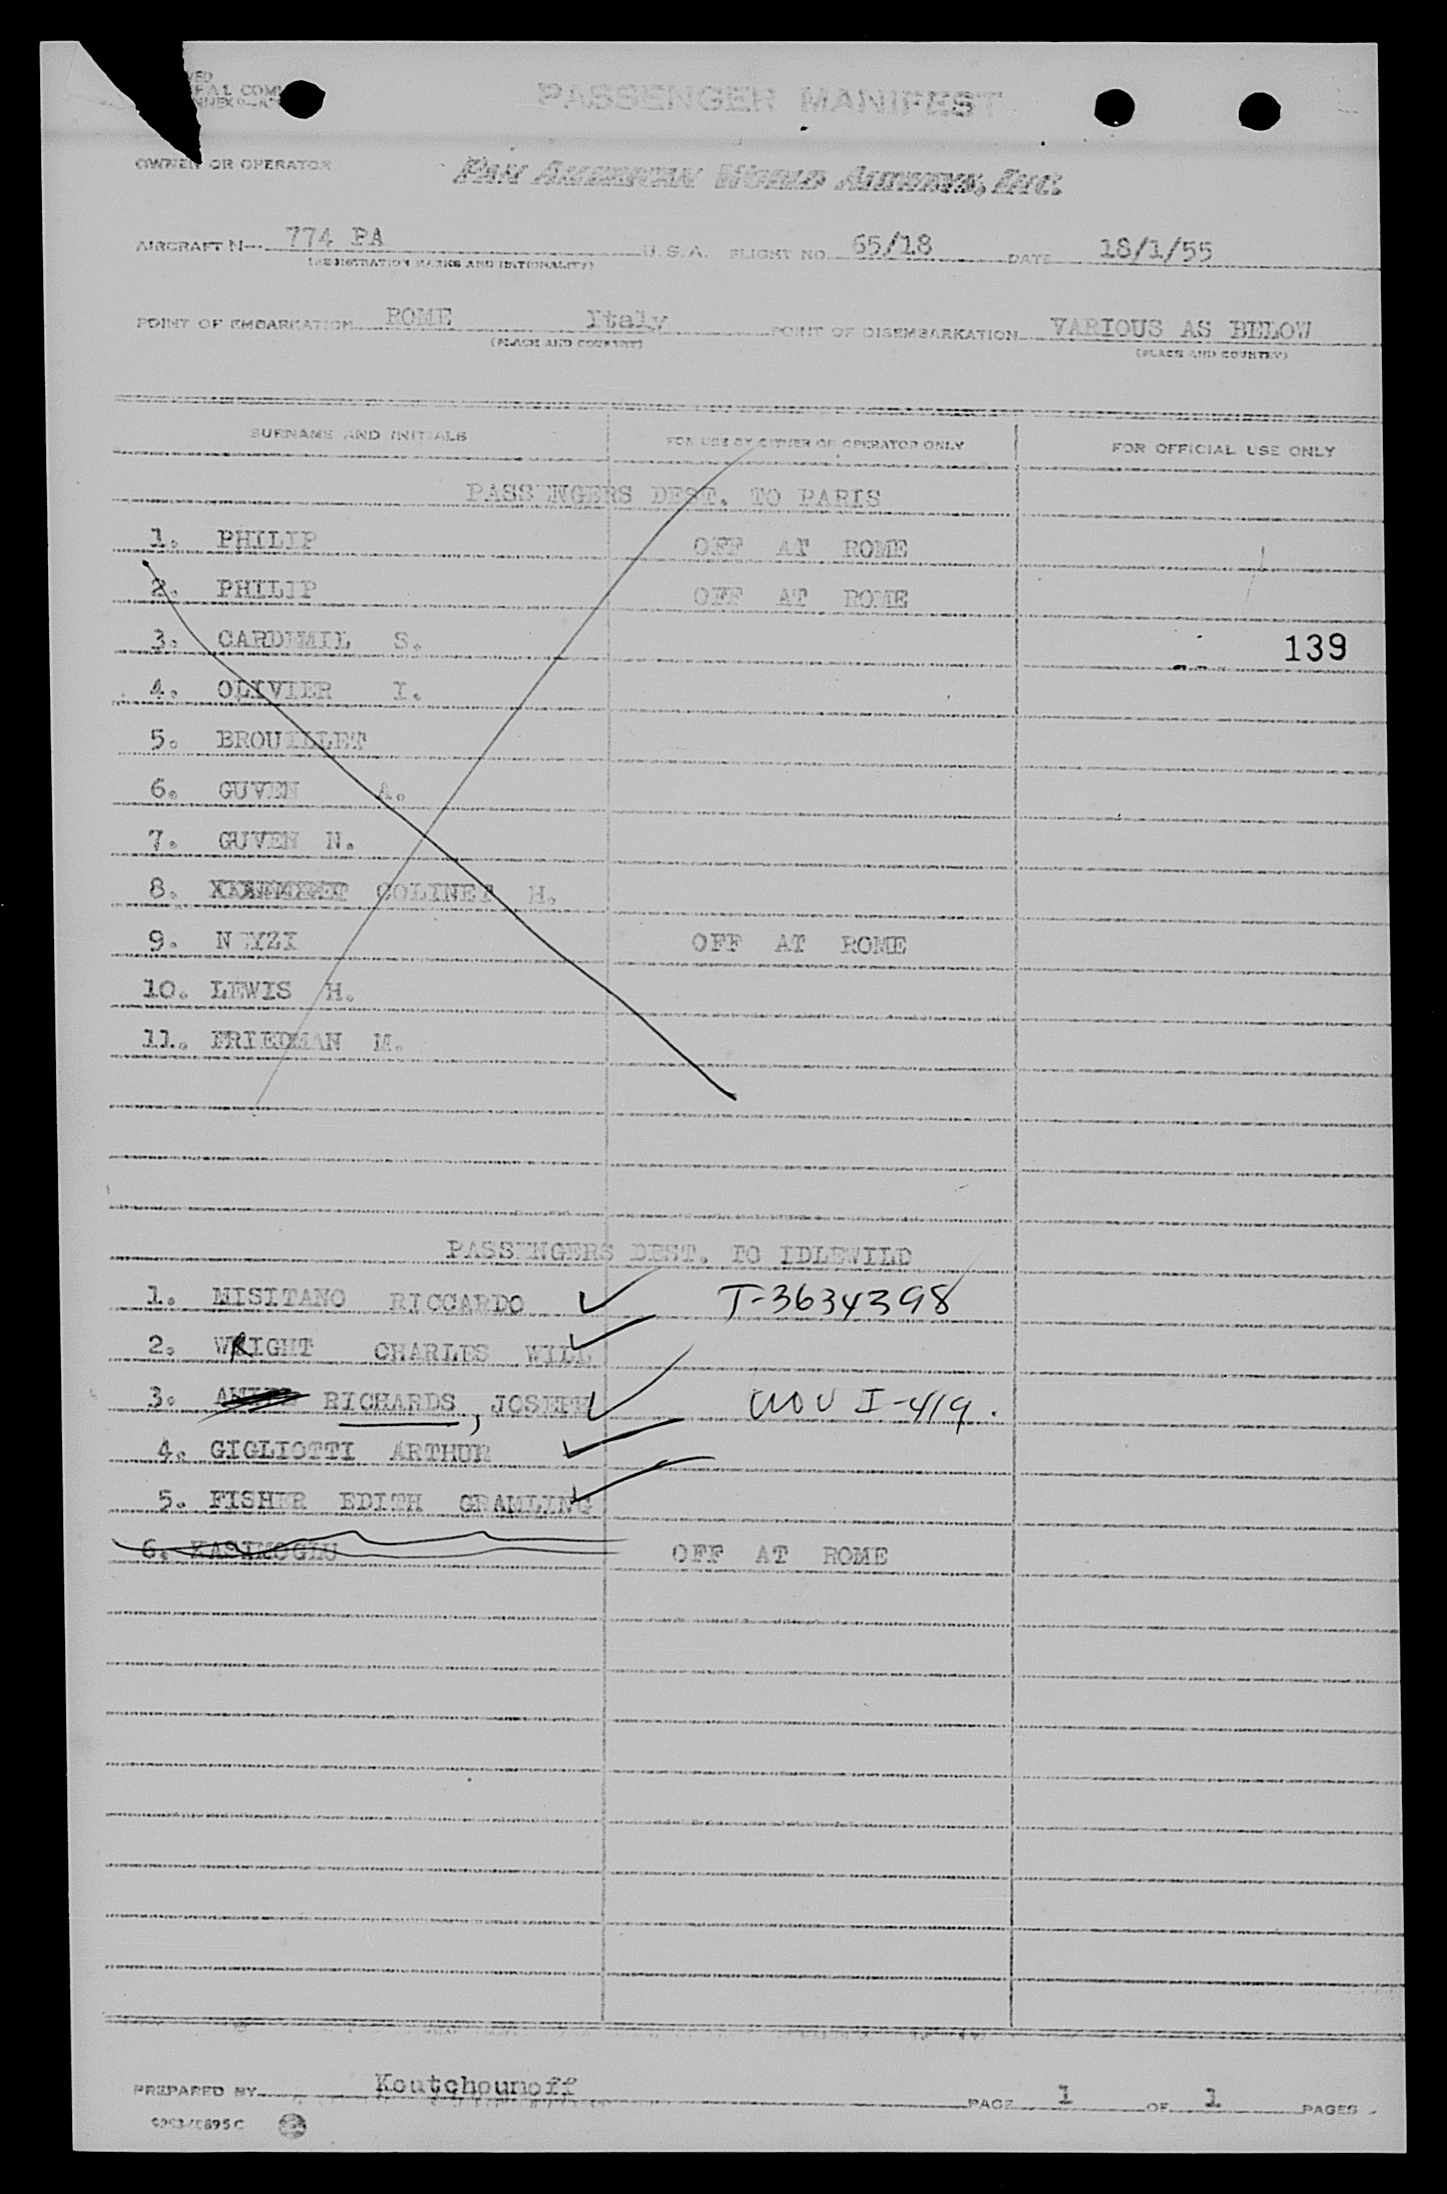 PASSENGER MANIFEST
OWNER OR OPERATOR PAN AMERICAN WORLD AIRWAYS, INC.
AIRCRAFT N- 774 PA U.S.A. FLIGHT NO. 65/18 DATE 18/1/55
(REGISTRATION MARKS AND NATIONALITY)
POINT OF EMBARKATION ROME Italy POINT OF DISEMBARKATION VARIOUS AS BELOW
(PLACE AND COUNTRY) (PLACE AND COUNTRY)
SURNAME AND INITIALS FOR USE BY OWNER OR OPERATOR ONLY FOR OFFICIAL USE ONLY
PASSENGERS DEST. TO PARIS
1. PHILIP OFF AT ROME
2. PHILIP OFF AT ROME
3. CARDEMIL S. 139
4. OLIVIER I.
5. BROUILLET
6. GUVEN A.
7. GUVEN N.
8. COLINET H.
9. NEYZI OFF AT ROME
10. LEWIS H.
11. FRIEDMAN M.
PASSENGERS DEST. TO IDLEWILD
1. MISITANO RICCARDO T-3634398
2. WRIGHT CHARLES WILL
3. RICHARDS, JOSEPH I-419.
4. GIGLIOTTI ARTHUR
5. FISHER EDITH GRAMLING
6. KASIMOGLU OFF AT ROME
PREPARED BY Koutchoumoff PAGE 1 OF 1 PAGES